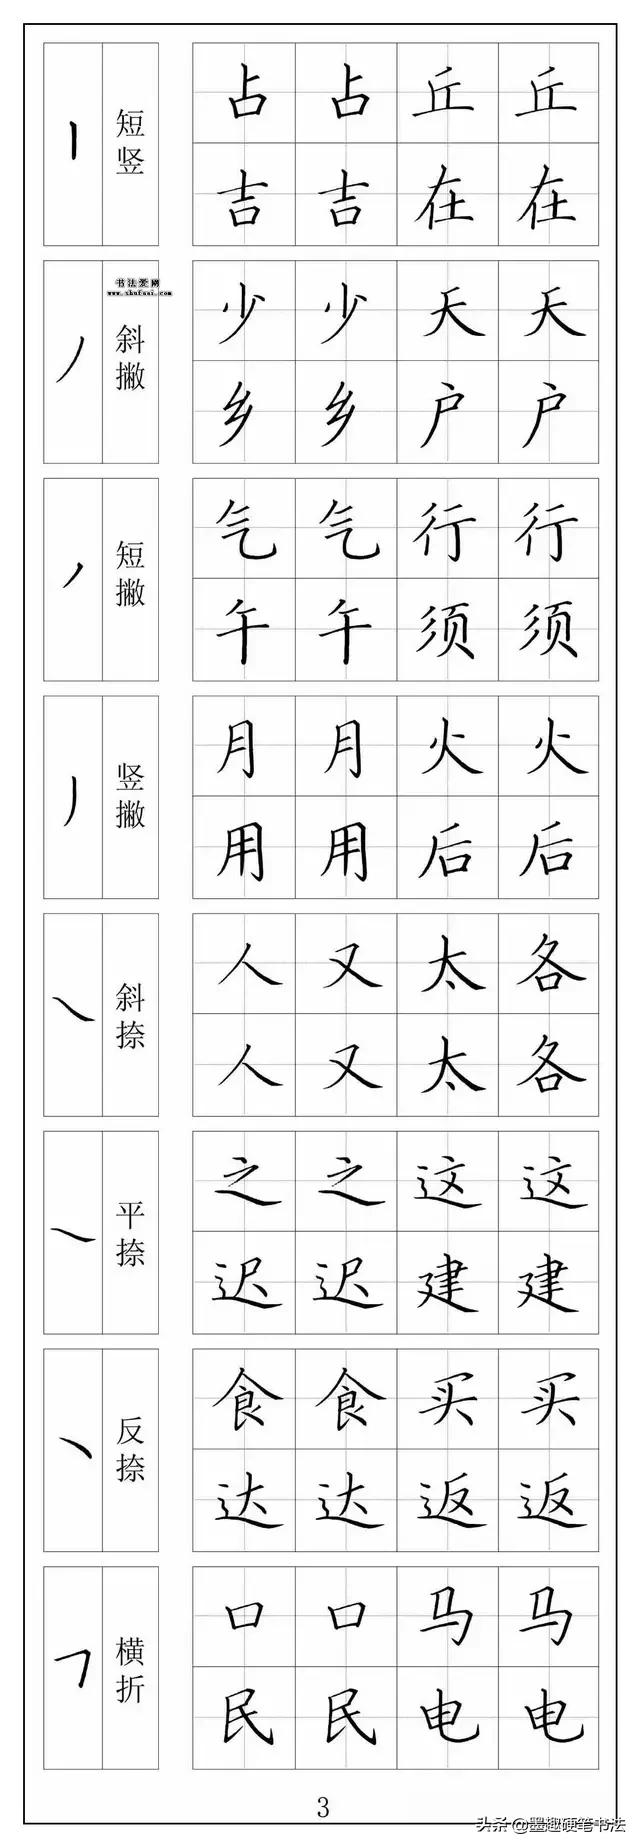 短竖
占 占 丘 丘
吉 吉 在 在
书法爱网
www.shufaai.com
斜撇
少 少 天 天
乡 乡 户 户
短撇
气 气 行 行
午 午 须 须
竖撇
月 月 火 火
用 用 后 后
斜捺
人 又 太 各
人 又 太 各
平捺
之 之 这 这
迟 迟 建 建
反捺
食 食 买 买
达 达 返 返
横折
口 口 马 马
民 民 电 电
3
头条 @墨趣硬笔书法